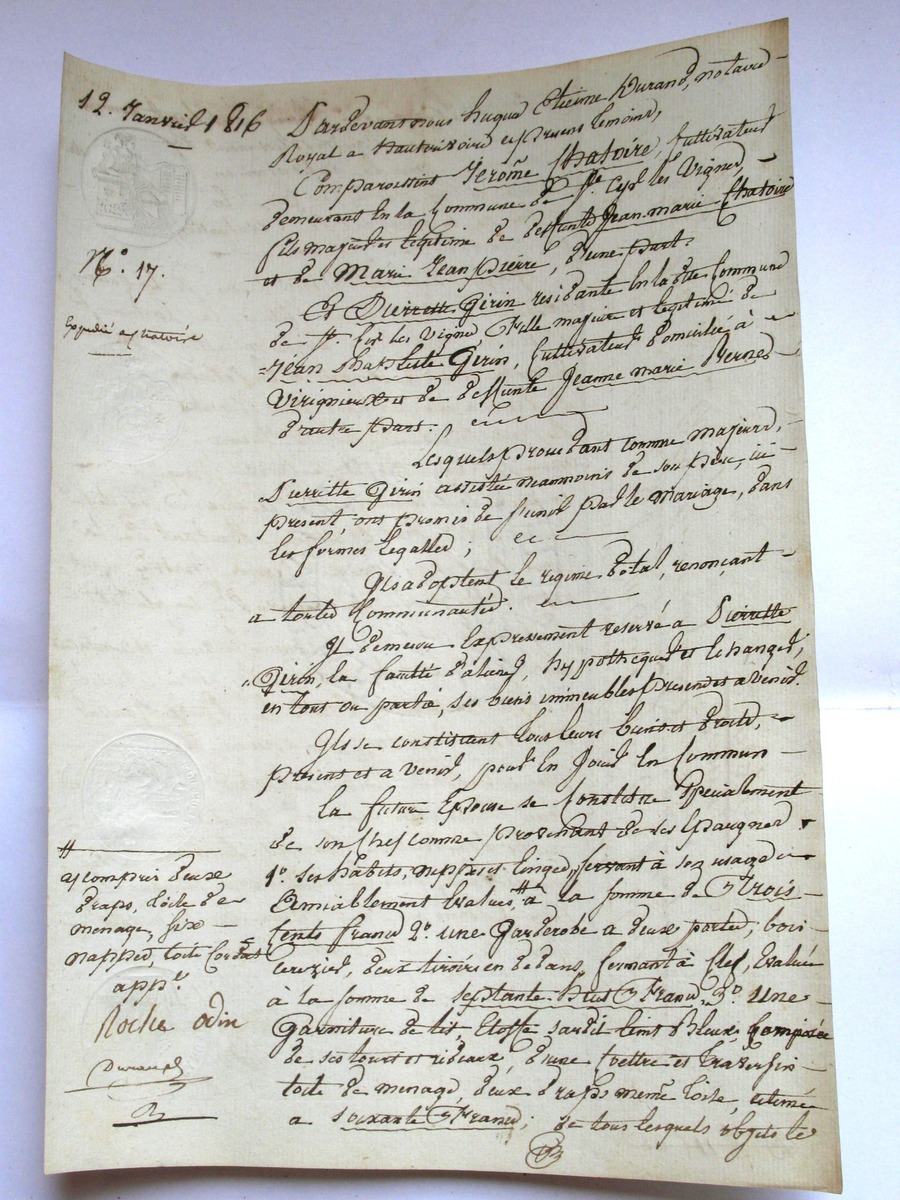 12. Janvier 1816
Pardevant nous hugue Etienne Durand, notaire
Royal a hauterivoire et presens temoins,
Comparoissent Jerôme Chatoire, Cultivateur
demeurant En la Commune de St. Cyr les Vignes,
fils majeur et legitime de defunts Jean marie Chatoire
et de Marie Jeanpierre, d'une part.
Et Pierrette Girin residante En la dte Commune
de St. Cyr les Vignes, fille majeure et legitime de
Jean baptiste Girin, Cultivateur domicilié à
Virignieux et de deffunte Jeanne marie Berne
d'autre part.
Lesquels procedant comme majeurs,
Pierrette Girin assistée neanmoins de son père, ici
present, ont promis de s'unir par le mariage, dans
les formes legalles;
Ils adoptent le regime dotal, renonçant
a toutes Communautés.
Il demeure Expressement reservé a Pierrette
Girin, la faculté d'aliener, hypothequer et Echanger,
en tout ou partie, ses biens immeubles presents et a venir.
Ils se constituent tous leurs biens et droits,
presents et a venir, pour En Jouir En Commun
la future Epouse se Constitue Specialement
de son chef comme provenant de ses Epargnes
1o. ses habits, nippes et linges, servant à son usage
Amiablement Evalués, # à la somme de Trois
Cents francs 2o. une Garderobe a deux portes, bois
Cerizier, deux tiroirs en dedans, fermant à clef, Evaluée
à la somme de septante huit Francs. 3o. Une
Garniture de lit, Etoffe sardis teint Bleux, Composée
de ses tours et rideaux, d'une Coettre et traversin
toile de menage, deux draps même toile, estimée
a soixante Francs; de tous lesquels objets le
No. 17.
Expedié a chatoire
# y compris deux
draps, toile de
menage, six
nappes, toile Cordat
appé.
Roche odin
Durand